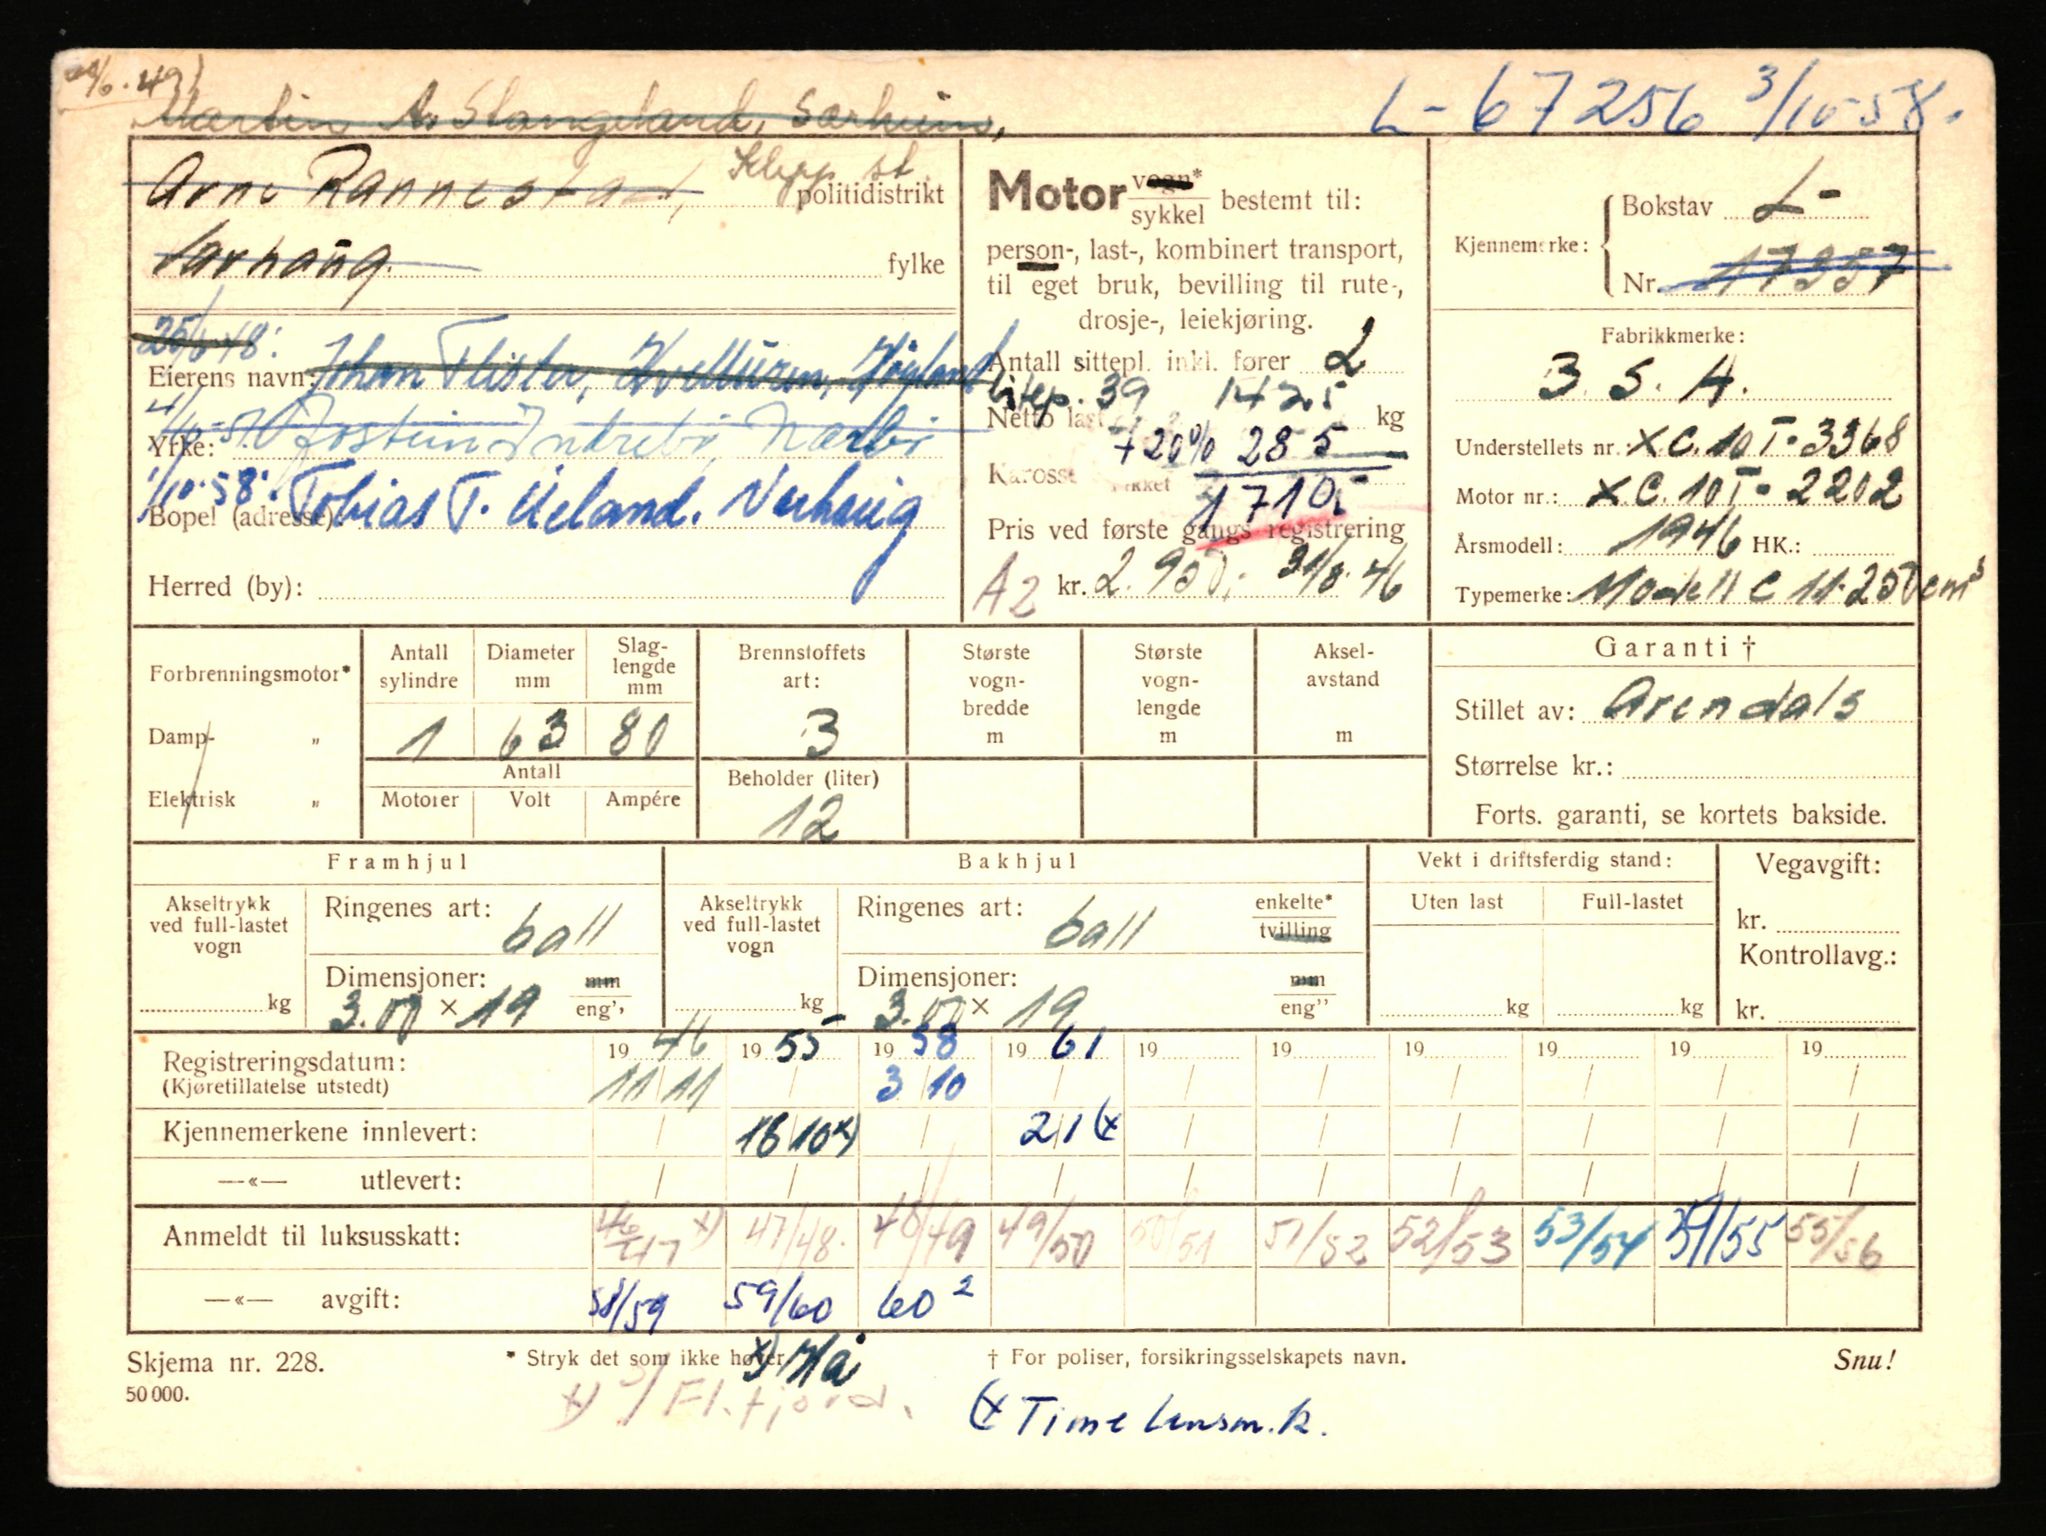 /6.49)
Martin A. Stangeland, Sørheim,
Klepp st.
L- 67256 3/10-58.
Arne Rannestad, politidistrikt
Varhaug. fylke
25/6 48:
Eierens navn:
Yrke: Jostein Undrebø, Nærbø
1/10.58. Tobias T. Ueland. Varhaug
Bopel (adresse):
Herred (by):
Motor vogn* / sykkel bestemt til:
person-, last-, kombinert transport,
til eget bruk, bevilling til rute-,
drosje-, leiekjøring.
Antall sittepl. inkl. fører 2
39 1425
Netto last kg
+20% 285
Karosse
1710,-
Pris ved første gangs registrering
A2 kr. 2.950,- 31/8.46
Kjennemerke: Bokstav L-
Nr. 17357
Fabrikkmerke:
B. S. A.
Understellets nr. XC.10 I-3368
Motor nr.: XC.10I-2202
Årsmodell: 1946 HK.:
Typemerke: Modell C 11.250cm³
Forbrenningsmotor*
Damp- „
Elektrisk „
Antall sylindre
1
Diameter mm
63
Slag-lengde mm
80
Antall
Motorer Volt Ampére
Brennstoffets art:
B
Beholder (liter)
12
Største vogn-bredde m
Største vogn-lengde m
Aksel-avstand m
Garanti †
Stillet av: Arendals
Størrelse kr.:
Forts. garanti, se kortets bakside.
Framhjul
Akseltrykk ved full-lastet vogn
kg
Ringenes art: ball
Dimensjoner: mm
3.00 × 19 eng’’
Bakhjul
Akseltrykk ved full-lastet vogn
kg
Ringenes art: ball enkelte* tvilling
Dimensjoner: mm
3.00 × 19 eng’’
Vekt i driftsferdig stand:
Uten last Full-lastet
kg kg
Vegavgift:
kr.
Kontrollavg.:
kr.
Registreringsdatum: 19 46 19 55 19 58 19 61 19 19 19 19 19 19
(Kjøretillatelse utstedt) 11/11 / 3/10 / / / / / / /
Kjennemerkene innlevert: / 18/10 x) / 2/1 (x / / / / / /
—«— utlevert: / / / / / / / / / /
Anmeldt til luksusskatt: 46/47 x) 47/48. 48/49 49/50 50/51 51/52 52/53 53/54 54/55 55/56
—«— avgift: 58/59 59/60 60²
Skjema nr. 228.
* Stryk det som ikke høver.
x) Hå
† For poliser, forsikringsselskapets navn.
Snu!
50 000.
x) 3/ Fl.fjord.
(x Time lensm.k.